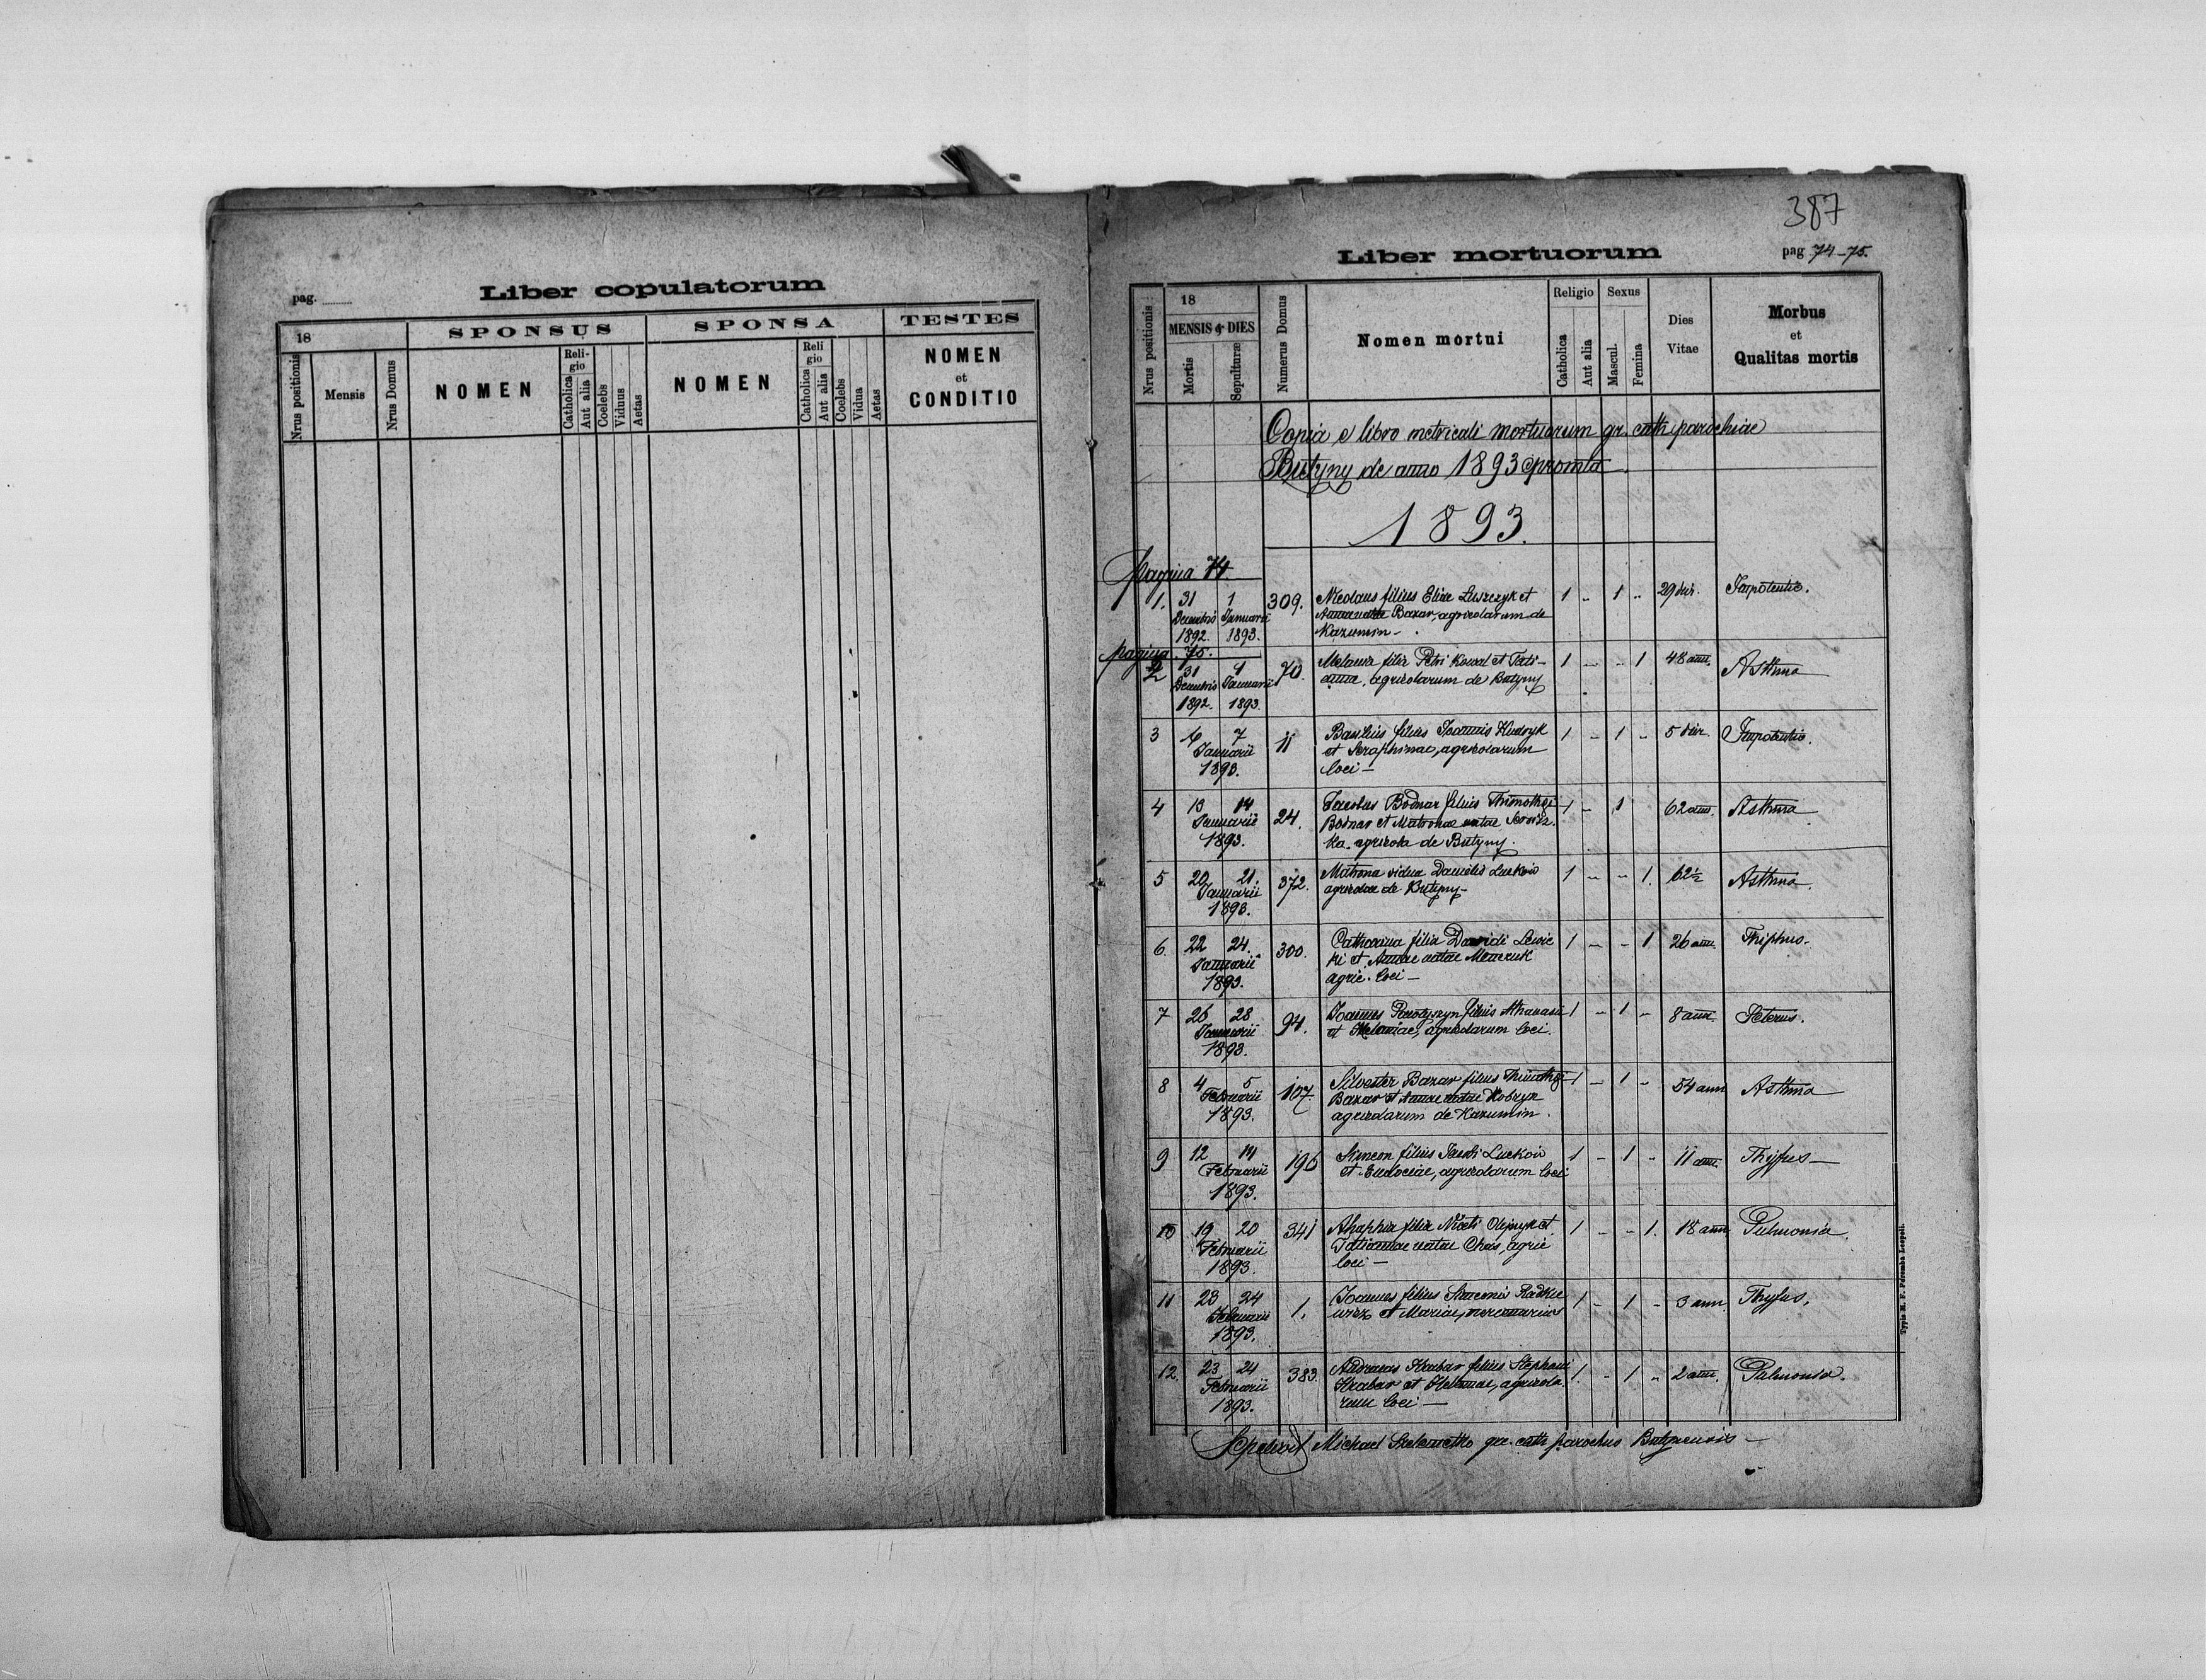 pag.
Liber copulatorum
18
SPONSUS
SPONSA
TESTES
Nrus positionis
Mensis
Nrus Domus
NOMEN
Reli-
gio
Catholica
Aut alia
Coelebs
Viduus
Aetas
NOMEN
Reli
gio
Catholica
Aut alia
Coelebs
Vidua
Aetas
NOMEN
et
CONDITIO
387
Liber mortuorum
pag 74-75.
Nrus positionis
18
MENSIS & DIES
Mortis
Sepulturæ
Numerus Domus
Nomen mortui
Religio
Catholica
Aut alia
Sexus
Mascul.
Femina
Dies
Vitae
Morbus
et
Qualitas mortis
Copia e libro metricali mortuorum gr. cath parochiae
Butyny de anno 1893 epromta
1893.
Pagina 74.
1. 31 1 309. filius Eliae et 1 " 1 " 29 dier.
Decembris Januarii Bazar, agricolarum de
1892. 1893. Kazumin -
pagina 75.
2 31 1 70. Melania filia Petri Kowal et Tati- 1 - - 1 48 ann. Asthma
Decembris Januarii annae, agricolarum de Butyny
1892. 1893.
3 7 11 Basilius filius Joannis Hudryk 1 - 1 - 5 dier. Impotentia.
Januarii et Seraphinae, agricolarum
1893. loci -
4 13 14 24. Jacobus Bodnar filius Thimothei 1 - 1 62 ann. Asthma
Januarii Bodnar et Matronae natae
1893. ka. agricola de Butyny.
5 20 21. 372. Matrona vidua Danielis Luckow 1 - - 1. 62½ Asthma.
Januarii agricolae de Butyny -
1893.
6. 22 24. 300. Catharina filia Davidi Lewic 1 - - 1 26 ann. Thiphus.
Januarii ki et Annae natae
1893. agric. loci -
7 26 28 94. Joannes filius Athanasii 1 - 1 - 8 ann. Icterus.
Januarii et Melaniae, agricolarum loci.
1893.
8 4 5 107. Silvester Bazar filius Thimothei 1 - 1 - 54 ann Asthma
Februarii Bazar et Annae natae
1893. agricolarum de Kazumin.
9 12 14 196 Simeon filius Jacobi Luckow 1 - 1 - 11 ann. Thyfus -
Februarii et Eudociae, agricolarum loci
1893.
10 19 20 341 Ahaphia filia Niceti Olejnyk et 1 - - 1. 18 ann Pulmonia.
Februarii Tatiannae natae agric
1893. loci -
11 23 24 1. Joannes filius Simeonis Radkie 1 - 1 - 3 ann. Thyfus.
Februarii wicz et Mariae,
1893.
12. 23 24 383. Andreas Hrabar filius Stephani 1. - 1 " 2 ann. Pulmonia.
Februarii Hrabar et agricola
1893. rum loci -
Sepelivit Michael gr. cath parochus Butynensis -
Typis H. F. Poremba Leopoli.